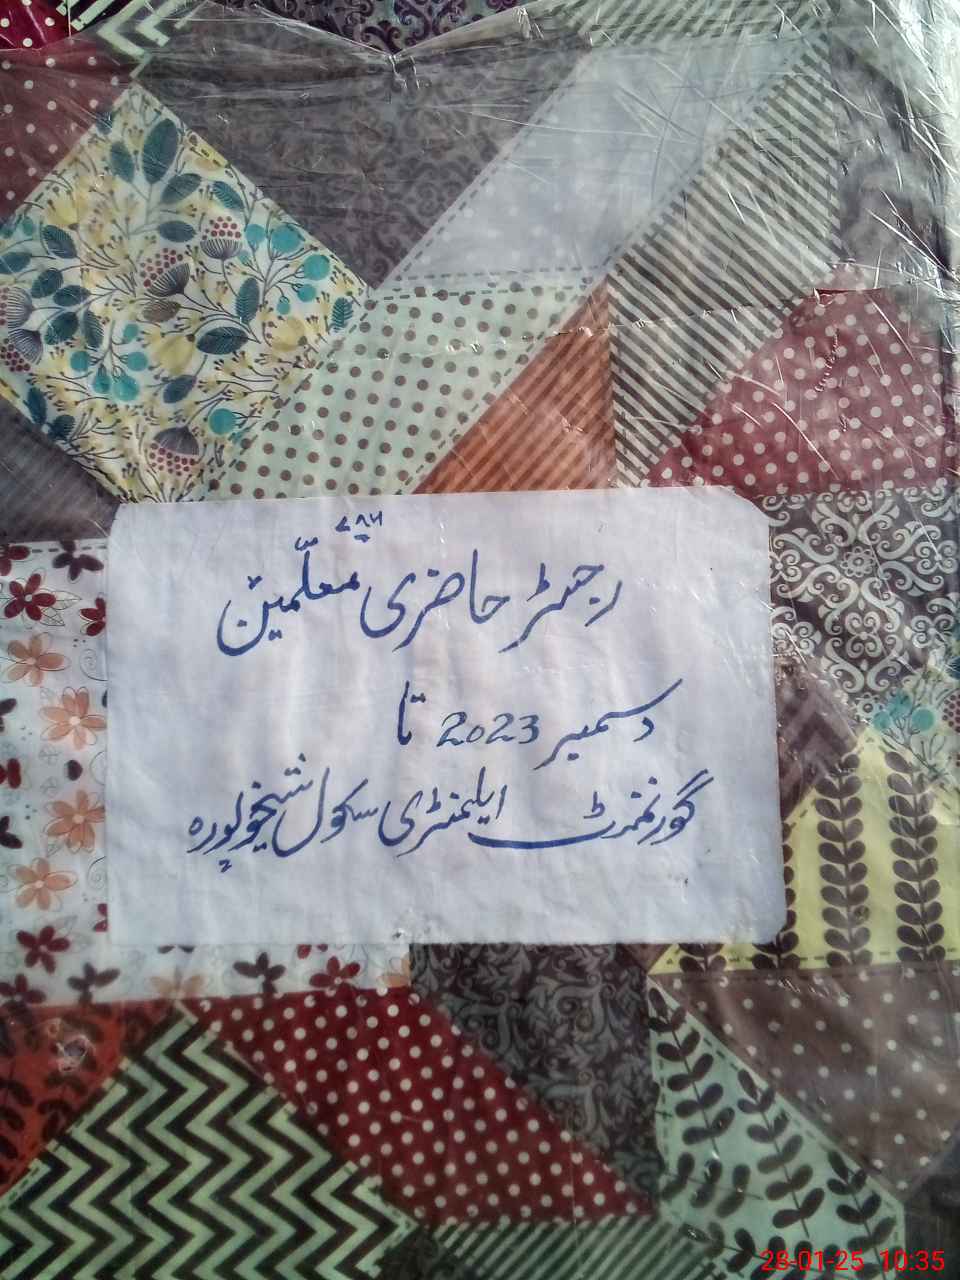 ۷۸۶
رجسٹر حاضری معلّمین
دسمبر 2023 تا
گورنمنٹ ایلیمنٹری سکول شیخوپورہ
28-01-25 10:35